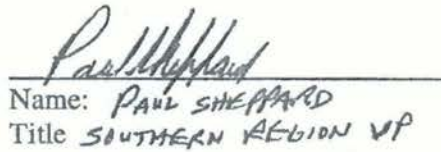 Paul Sheppard
Name: PAUL SHEPPARD
Title SOUTHERN REGION VP